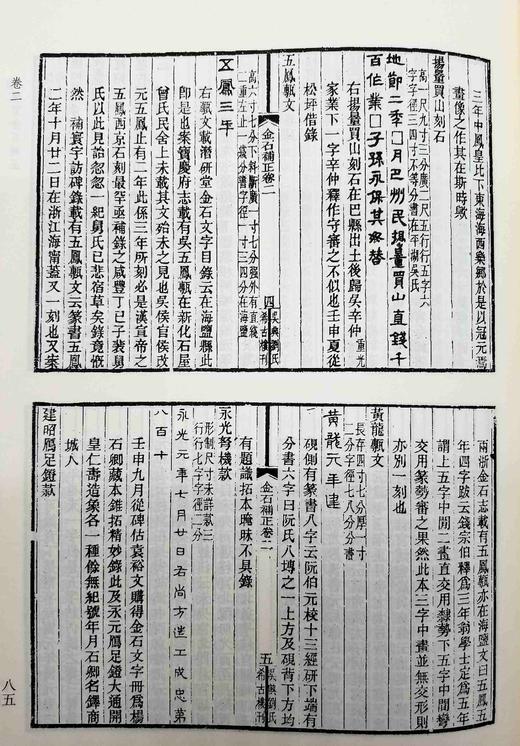 三年中鳳皇比下東海海西樂鄉於是以冠元焉
畫像之作其在斯時歟
揚量買山刻石
高一尺九寸三分廣二尺五行行五字六
字字徑三寸四寸不等分書在平湖吳氏
地節二年□月巴州民揚量買山直錢千
百作業□子孫永保其毋替
右揚量買山刻石在巴縣出土後歸吳辛仲
家業下一字辛仲釋作守審之不似也壬申夏從
松坪借錄
五鳳甎文
金石補正卷二
四
吳興劉氏
希古樓刊
五鳳三年
右甎文載潛研堂金石文字目錄云在海鹽縣此
卽是也案寶慶府志載有吳五鳳甎在新化石屋
曾氏民舍上未載其文殆未之見也吳侯官侯改
元五鳳止有二年此係三年所刻必是漢宣帝之
五鳳西京石刻最罕亟補錄之咸豐丁巳子裴舅
氏以此見詒忽忽一紀舅氏已悲宿草矣錄竟愾
然
補寰宇訪碑錄載有五鳳甎文云篆書五鳳
二年十月廿二日在浙江海甯蓋又一刻也又案
卷二
兩浙金石志載有五鳳甎亦在海鹽文曰五鳳五
年四字跋云錢宗伯釋爲三年翁學士定爲五年
謂上五字中閒二畫直交用隸勢下五字中閒彎
交用篆勢審之果然此本三字中畫並無交形則
亦別一刻也
黃龍甎文
長存四寸七分厚一寸
二分字徑七八分分書
黃龍元年建
硯側有篆書八字云阮伯元校十三經研下端有
分書六字曰阮氏八塼之一上方及硯背下方均
有題識拓本晻昧不具錄
金石補正卷二
五
吳興劉氏
希古樓刊
永光弩機款
形制尺寸未詳款三
行行七字字徑二分
永光元年七月廿日右尚方造工成忠第
八百十
壬申九月從碑估袁裕文購得金石文字冊爲楊
石卿藏本錐拓精妙錄此及永元鴈足鐙大通開
皇仁壽造象各一種餘無紀號年月石卿名鐸商
城人
建昭鴈足鐙款
八五